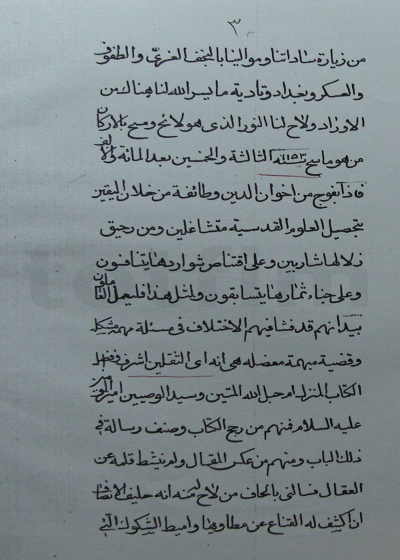 ٣
من زيارة ساداتنا وموالينا بالنجف الغري والطفوف
والعسكر وبغداد وتادية ما يسر الله لنا هنالك من
الاوراد ولاح لنا النور الذى هو لائح ومسح بالاركان
من هو ماسح ١١٥٣ سنه الثالثة والخمسين بعد المائه والالف
فاذا بفوج من اخوان الدين وطائفة من خلان اليقين
بتحصيل العلوم القدسية متشاغلين ومن رحيق
زلالها شاربين وعلى اقتناص شواردها يتنافسون
وعلى جناء ثمارها يتسابقون ولمثل هذا فليعمل العاملون
بيد انهم قد فشا فيهم الاختلاف فى مسئلة مهمة مشكله
وقضية مبهمة معضله هى انه اى الثقلين اشرف وافضل
الكتاب المنزل ام حبل الله المتين وسيد الوصيين امير المؤمنين
عليه السلام فمنهم من رجح الكتاب وصنف رسالة فى
ذلك الباب ومنهم من عكس المقال ولم ينشط قلمه عن
العقال فسالنى بالحاف من لاح لى منه انه حليف الانصاف
ان اكشف له القناع عن مطاويها واميط الشكوك التى